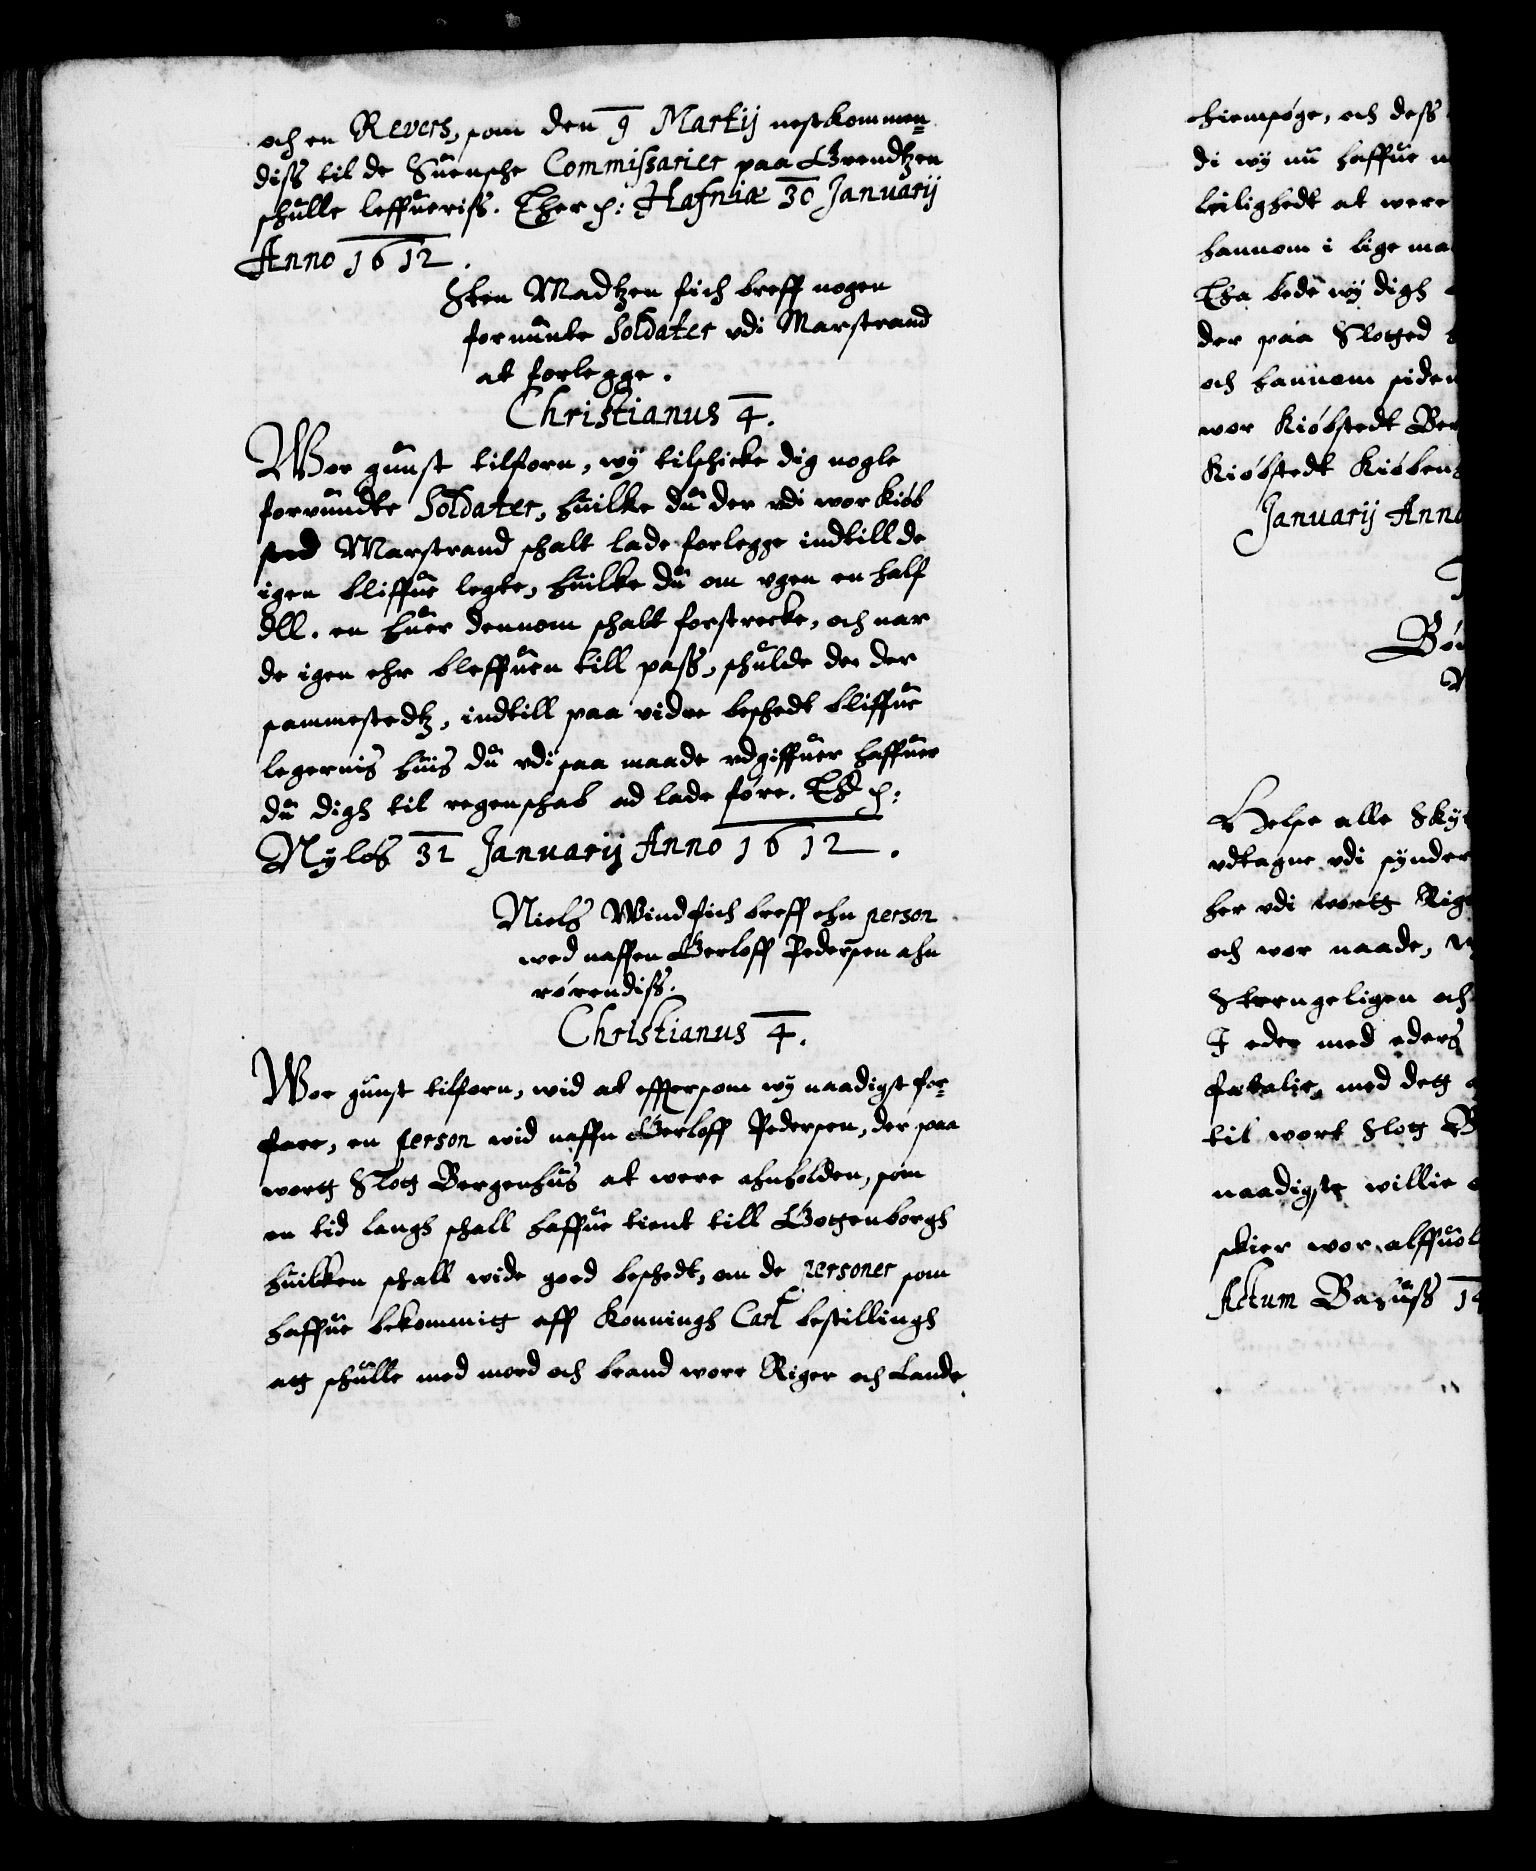 och en Revers, som den 9 Martij nestkommen=
diss til de Suensche Commissarier paa Grendtzen
schulle leffueriss. Ther p: Hafniæ 30 Januarij
Anno 1612.
Sten Madtzen fich breff nogen
forwunte Soldater vdi Marstrand
at forlegge.
Christianus 4.
Wor gunst tilforn, wÿ tilschicke dig nogle
forwundte Soldater, huilke du der vdi wor kiøb
sted Marstrand schalt lade forlegge indtill de
igen bliffue legte, huilke du om vgen en half
dll. en huer dennom schalt forstrecke, och nar
de igen ehr bleffuen till pass, schulde de der
sammestedtz, indtill paa vidre beschedt bliffue
legernis huis du vdi saa maade vdgiffuer haffuer
du digh til regenschab ad lade føre. Thr p:
Nyløs 31 Januarij Anno 1612.
Niels Wind fich breff ehn person
wed naffen Gerloff Pedersen ahn
rørendiss.
Christianus 4.
Wor gunst tilforn, wid at effter som wÿ naadigst for=
fare, en person wid naffn Gerloff Pedersen, der paa
wortt Slott Bergenhus at were ahnholden, som
en tid langh schall haffue tient till Gottenborgh
huilken schall wide goed beschedt, om de personer som
haffue bekommitt aff Konningh Carl bestillingh
att schulle med mord och brand wore Riger och Lande
hiemsøge, och dess
di wÿ nu haffue
leilighedt at were
hannom i lige
Tha bede wÿ digh
der paa Slotted
och hannom siden
wor Kiøbstedt
Kiøbstedt
Januarij
Helse alle
vdtagne vdi
her vdi wortt
och wor naade,
Strengeligen och
I eder med eders
fetalie, med dett
til wort Slott
naadigste willie
skier wor
Actum Bahuss